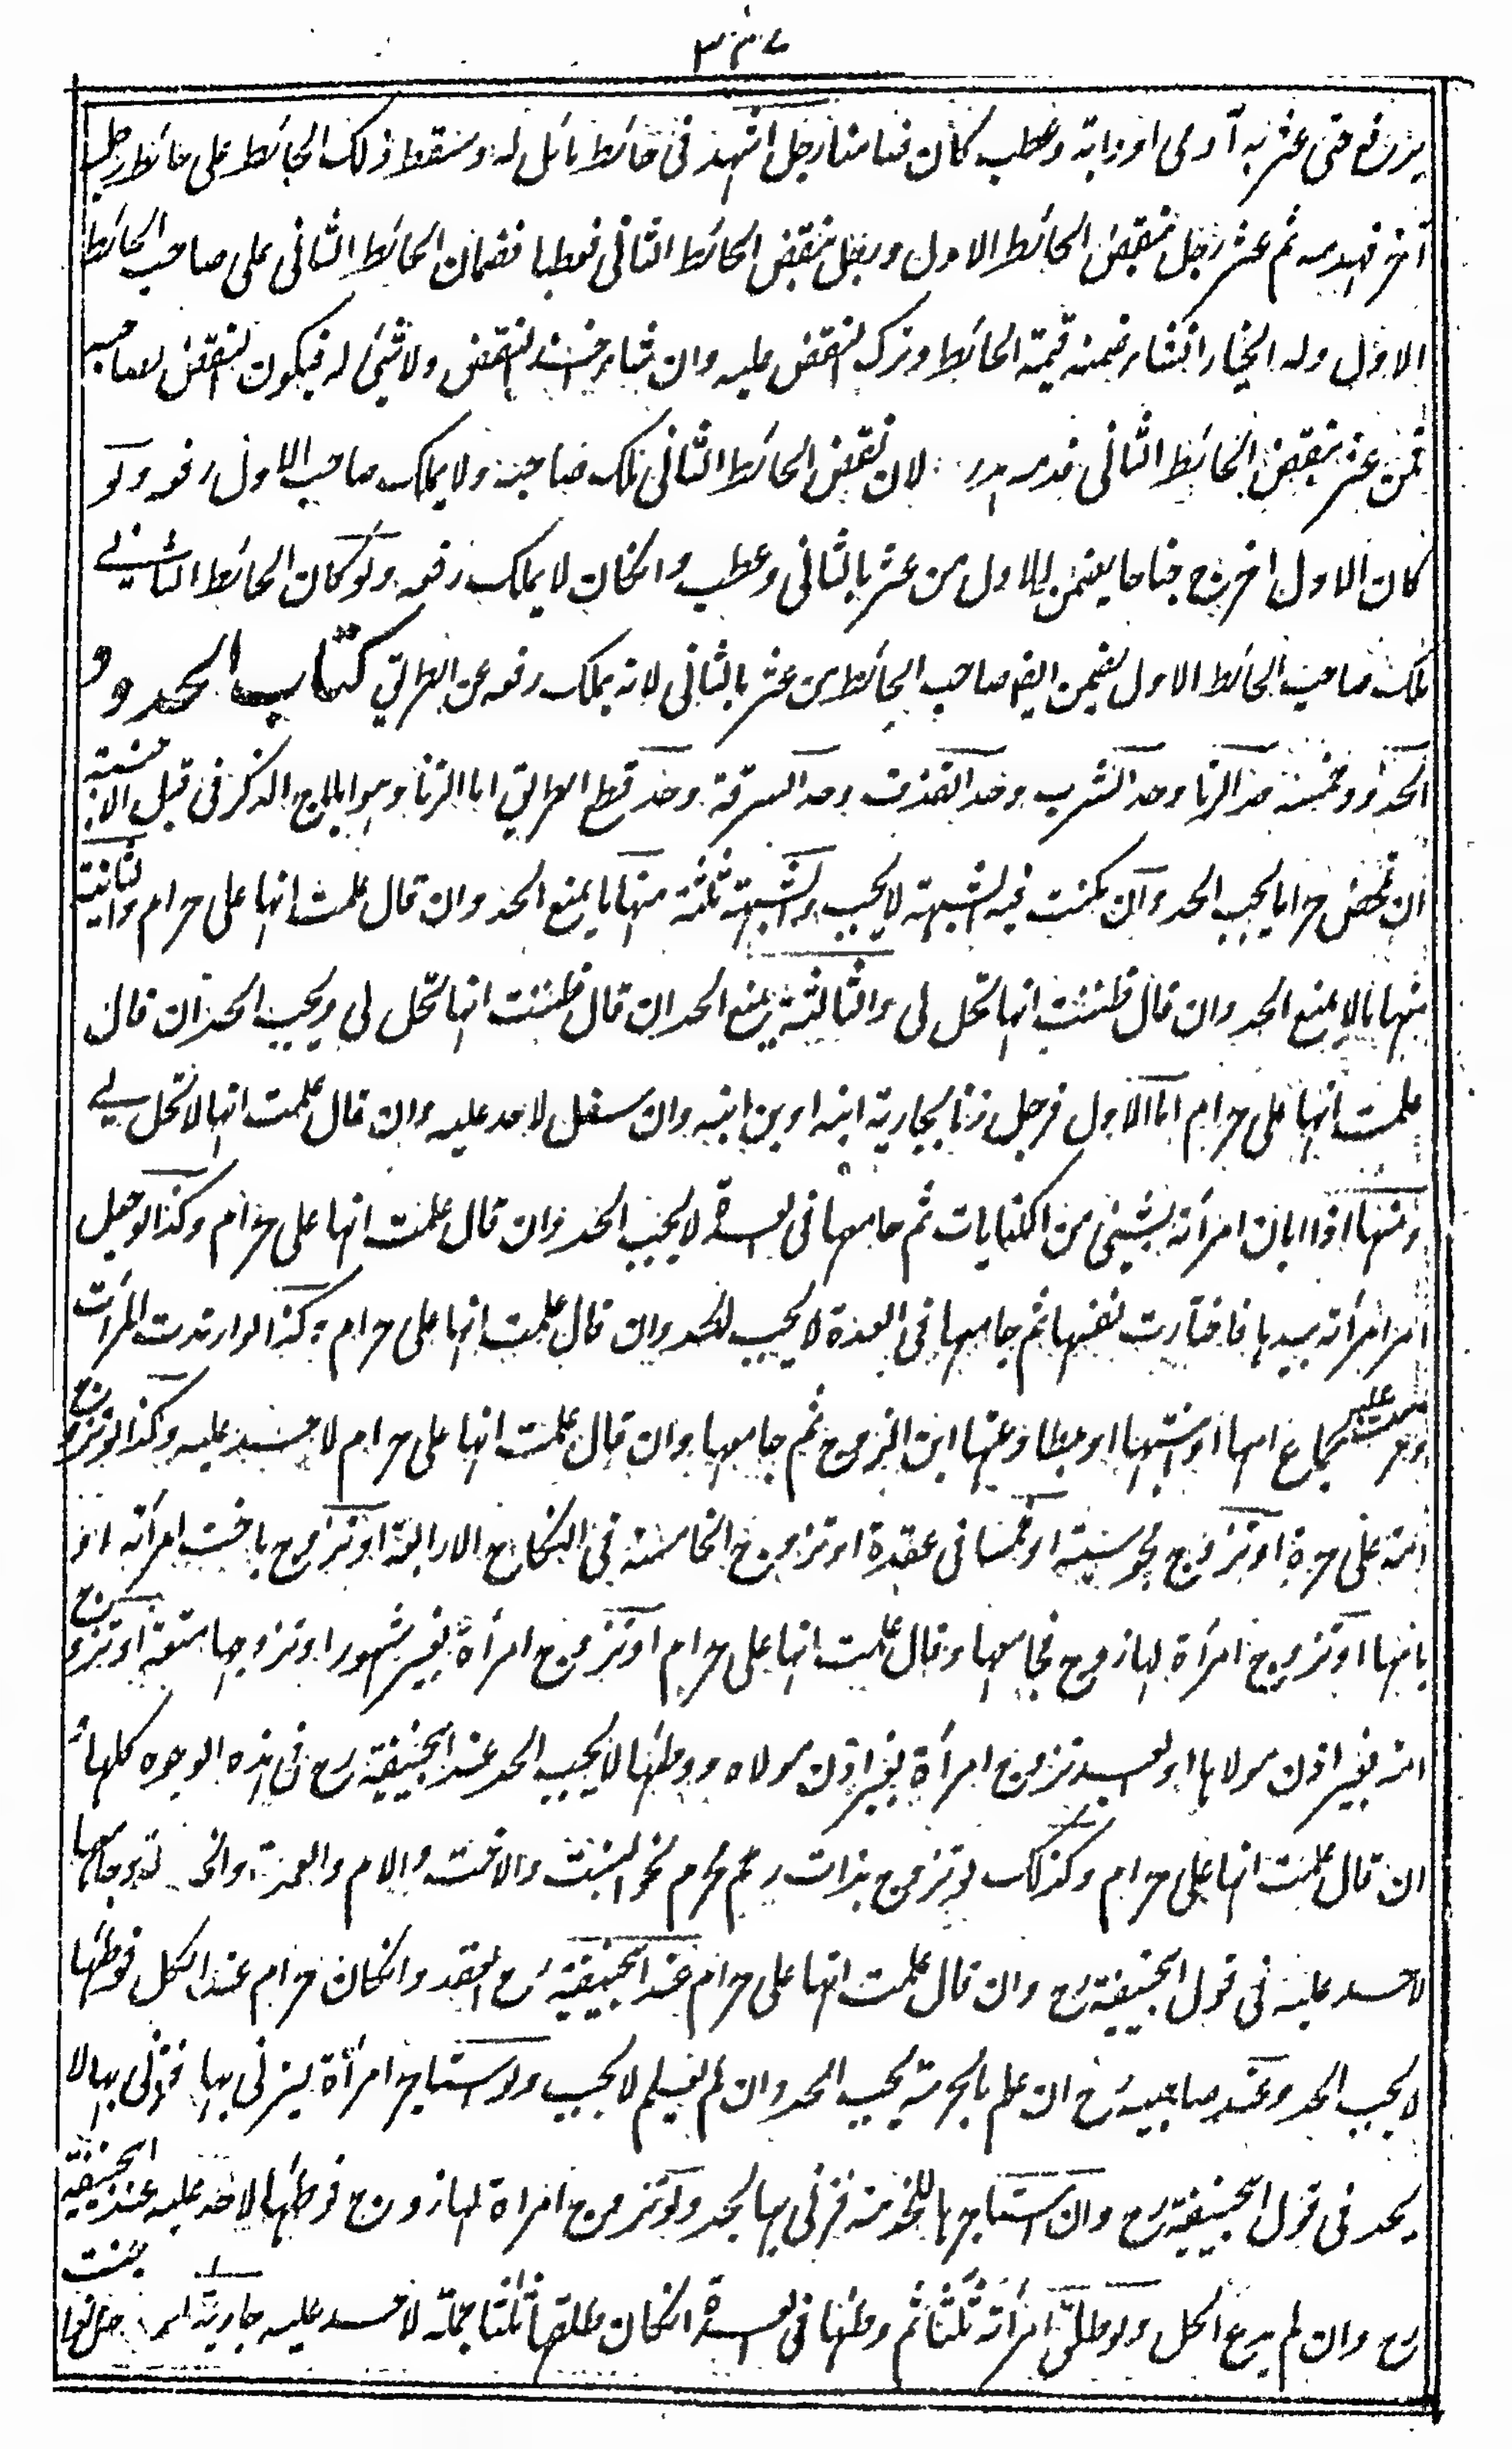 يرفع حتى عثر به آدمى او دابة وعطب كان ضامنا رجل اشهد فى حائط مائل له وسقط ذلك الحائط على حائط رجل
آخر فهدمه ثم عثر رجل بنقض الحائط الاول ورجل بنقض الحائط الثانى فعطبا فضمان الحائط الثانى على صاحب الحائط
الاول وله الخيار انشاء ضمنه قيمة الحائط وترك النقض عليه وان شاء اخذ النقض ولا شئ له فيكون النقض لصاحبه
فمن عثر بنقض الحائط الثانى فدمه هدر لان نقض الحائط الثانى ملك صاحبه ولا يملك صاحب الاول رفعه ولو
كان الاول اخرج جناحا يضمن الاول من عثر بالثانى وعطب وانكان لا يملك رفعه ولو كان الحائط الثانى
ملك صاحب الحائط الاول يضمن ايضا صاحب الحائط من عثر بالثانى لانه يملك رفعه عن الطريق كتاب الحدود
الحدود خمسة حد الزنا وحد الشرب وحد القذف وحد السرقة وحد قطع الطريق اما الزنا وهو ايلاج الذكر فى قبل الاجنبية
ان تمحض حراما يجب الحد وان تمكنت فيه الشبهة لا يجب والشبهة ثلثة منها ما يمنع الحد وان قال علمت انها على حرام والثانية
منها ما لا يمنع الحد وان قال ظننت انها تحل لى والثالثة يمنع الحد ان قال ظننت انها تحل لى ويجب الحد ان قال
علمت انها على حرام اما الاول فرجل زنا بجارية ابنه او بن ابنه وان سفل لا حد عليه وان قال علمت انها لا تحل لى
ومنها اذا ابان امرأته بشئ من الكنايات ثم جامعها فى العدة لا يجب الحد وان قال علمت انها على حرام وكذا لو جعل
امر امرأته بيدها فاختارت نفسها ثم جامعها فى العدة لا يجب الحد وان قال علمت انها على حرام وكذا لو ارتدت المرأة
وحرمت عليه بجماع امها او بنتها او بمطاوعتها ابن الزوج ثم جامعها وان قال علمت انها على حرام لا حد عليه وكذا لو تزوج
امة على حرة او تزوج مجوسية او خمسا فى عقدة او تزوج الخامسة فى النكاح الاربعة او تزوج باخت امرأته او
بامها او تزوج امرأة لها زوج فجامعها وقال علمت انها على حرام او تزوج امرأة بغير شهود او تزوجها متعة او تزوج
امة بغير اذن مولاها او العبد تزوج امرأة بغير اذن مولاه ووطئها لا يجب الحد عند ابيحنيفة رح فى هذه الوجوه كلها و
ان قال علمت انها على حرام وكذلك لو تزوج بذات رحم محرم نحو البنت والاخت والام والعمة والخالة وجامعها
لا حد عليه فى قول ابيحنيفة رح وان قال علمت انها على حرام عند ابيحنيفة رح العقد وانكان حرام عند الكل فوطئها
لا يجب الحد وعند صاحبيه رح ان علم بالحرمة يجب الحد وان لم يعلم لا يجب ولو استاجر امرأة ليزنى بها فزنى بها لا
يحد فى قول ابيحنيفة رح وان استاجرها للخدمة فزنى بها يحد ولو تزوج امراة لها زوج فوطئها لا حد عليه عند ابيحنيفة
رح وان لم يدع الحل ولو طلق امرأته ثلثا ثم وطئها فى العدة انكان طلقها ثلثا جملة لا حد عليه جارية